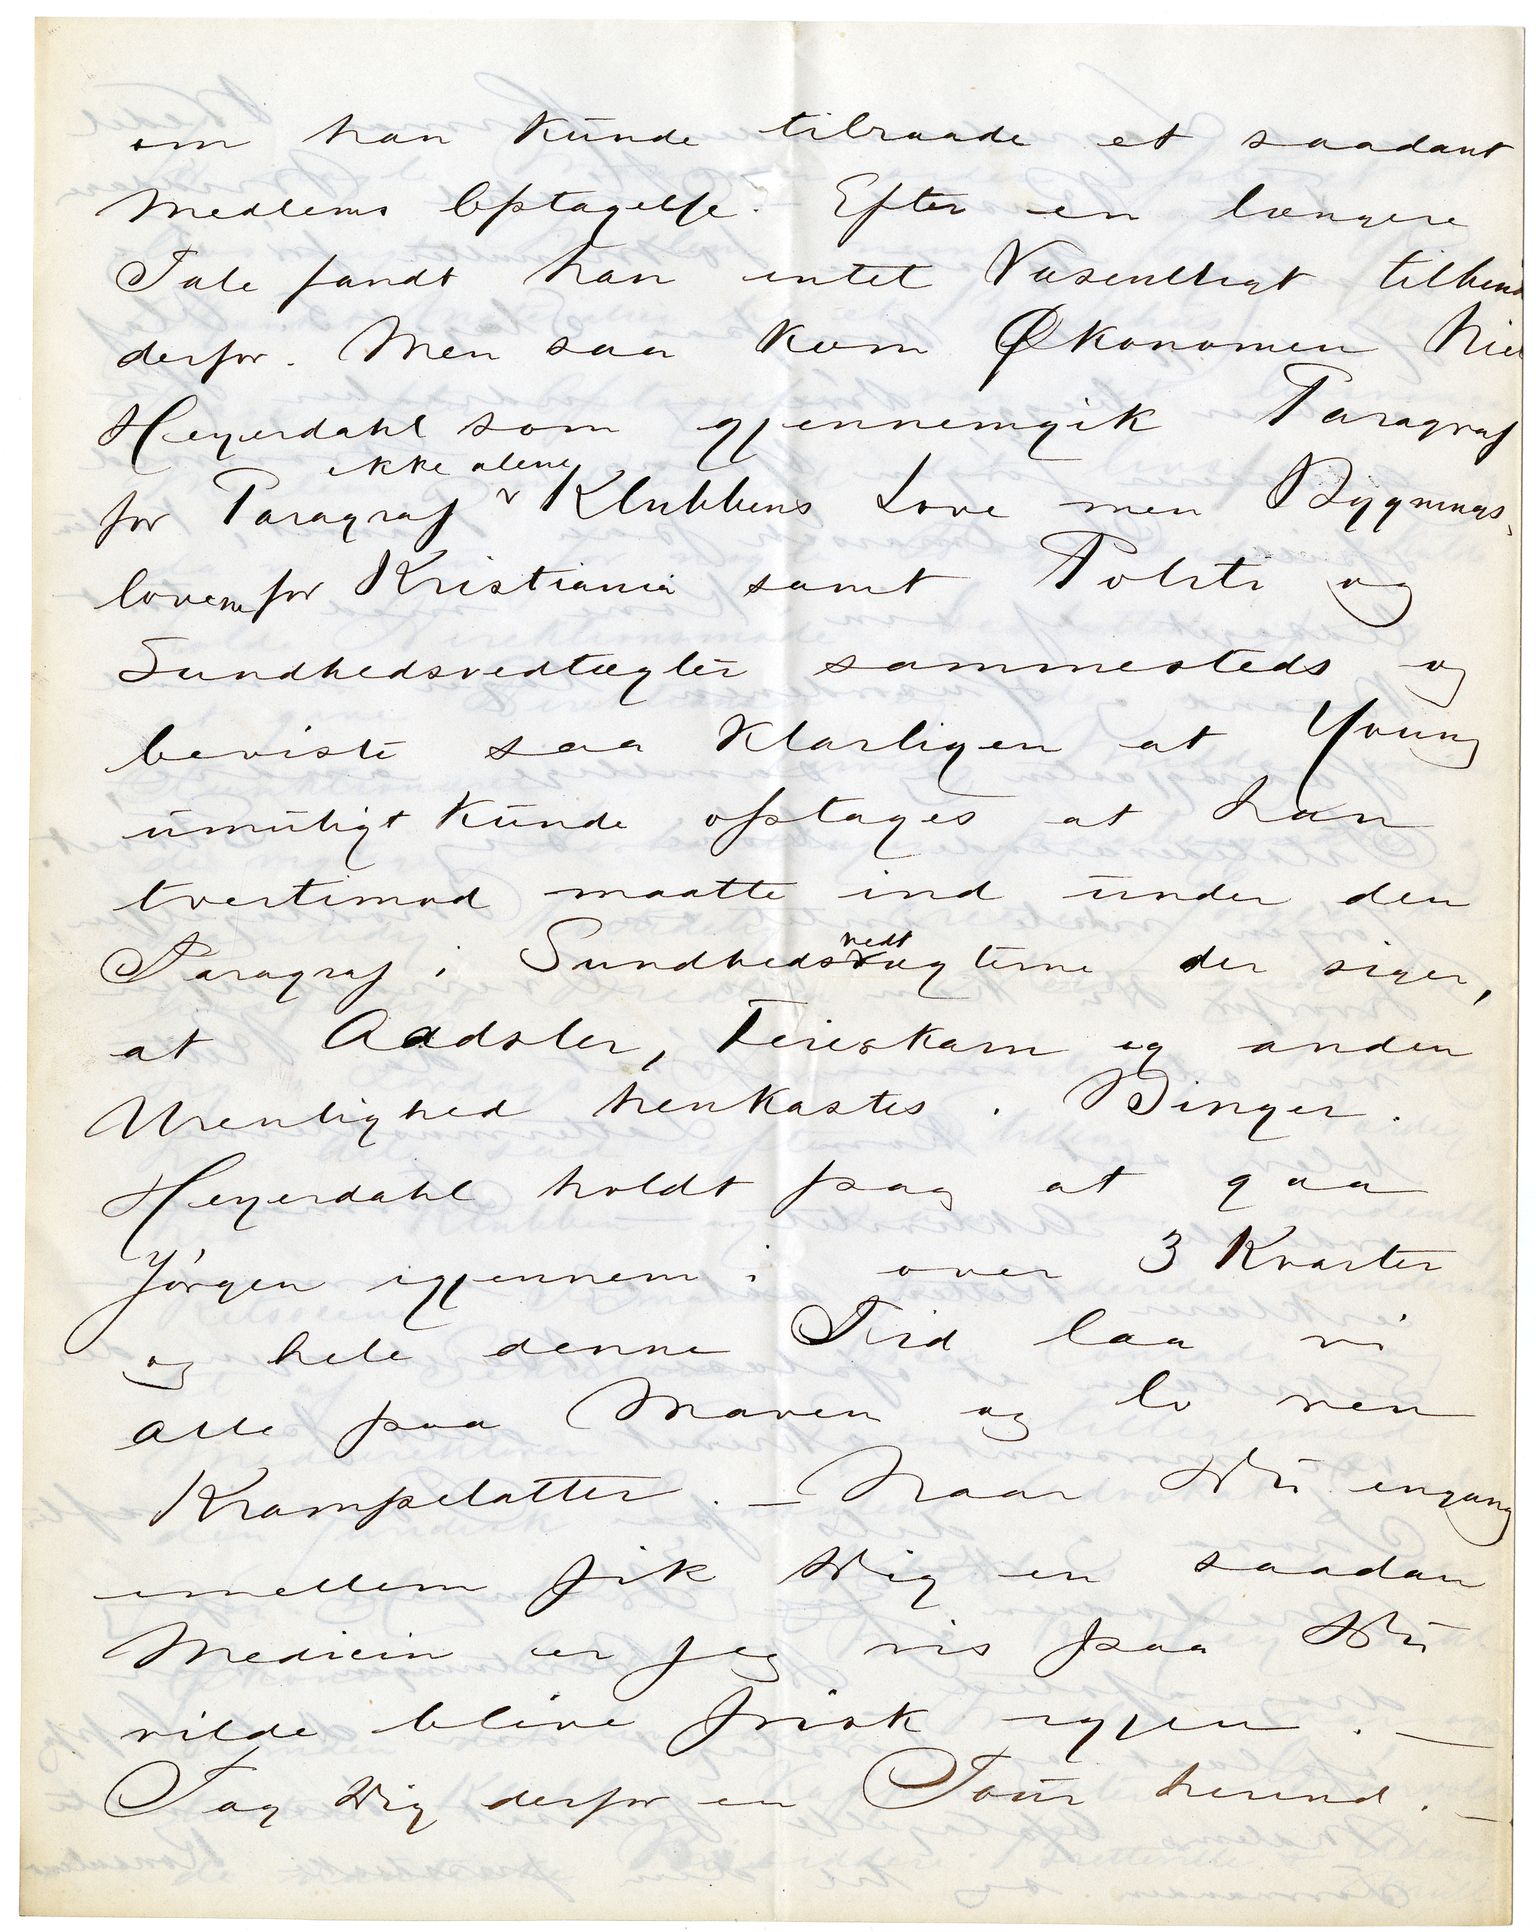 om han kunde tilraade et saadant
Medlems Optagelse. Efter en længere
Tale fandt han intet Væsentligt tilhin
derfor. Men saa kom Økonomen
Heyerdahl som gjennemgik Paragraf
for Paragraf ikke alene Klubbens Love men Bygnings-
lovene for Kristiania samt Politi og
Sundhedsvedtægter sammesteds og
beviste saa klarligen at Young
umuligt kunde optages at han
tvertimod maatte ind under den
Paragraf i Sundhedsvedtægterne der siger,
at Aadsler, Feieskarn og anden
Urenlighed henkastes. Binger.
Heyerdahl holdt paa at gaa
Jörgen igjennem i over 3 Kvarter
og hele denne Tid laa vi
alle paa Maven og lo ren
Krampelatter. – Naar Du engang
imellem fik Dig en saadan
Medicin er jeg vis paa Du
vilde blive frisk igjen. –
Tag Dig derfor en Tour herind. –